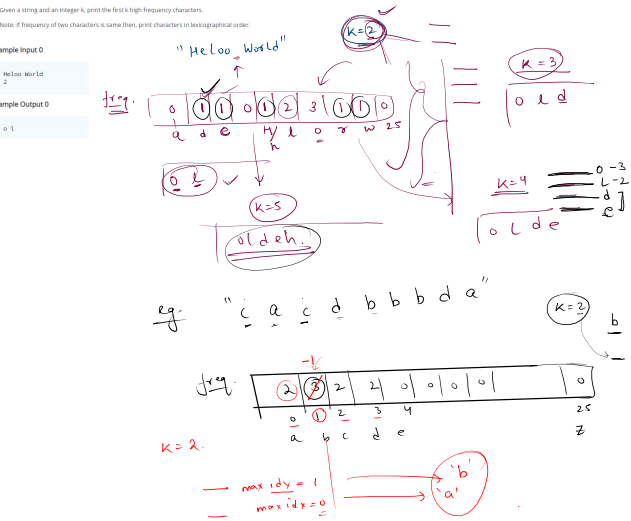 Given a string and an integer k, print the first k high frequency characters.
Note: if frequency of two characters is same then, print characters in lexicographical order.
ample Input 0
Heloo World
2
ample Output 0
o l
"Heloo World"
K=2
K=3
o l d
freq.
0 1 1 0 1 2 3 1 1 0
a d e H/h l o r w 25
o l
K=5
o l d e h.
K=4
o l d e
o-3
L-2
d
e
eg. "c a c d b b b d a"
K=2
b
-1
freq.
2 3 2 2 0 0 0 0 0
0 1 2 3 4 25
a b c d e z
K=2.
max idx = 1
'b'
max idx = 0
'a'